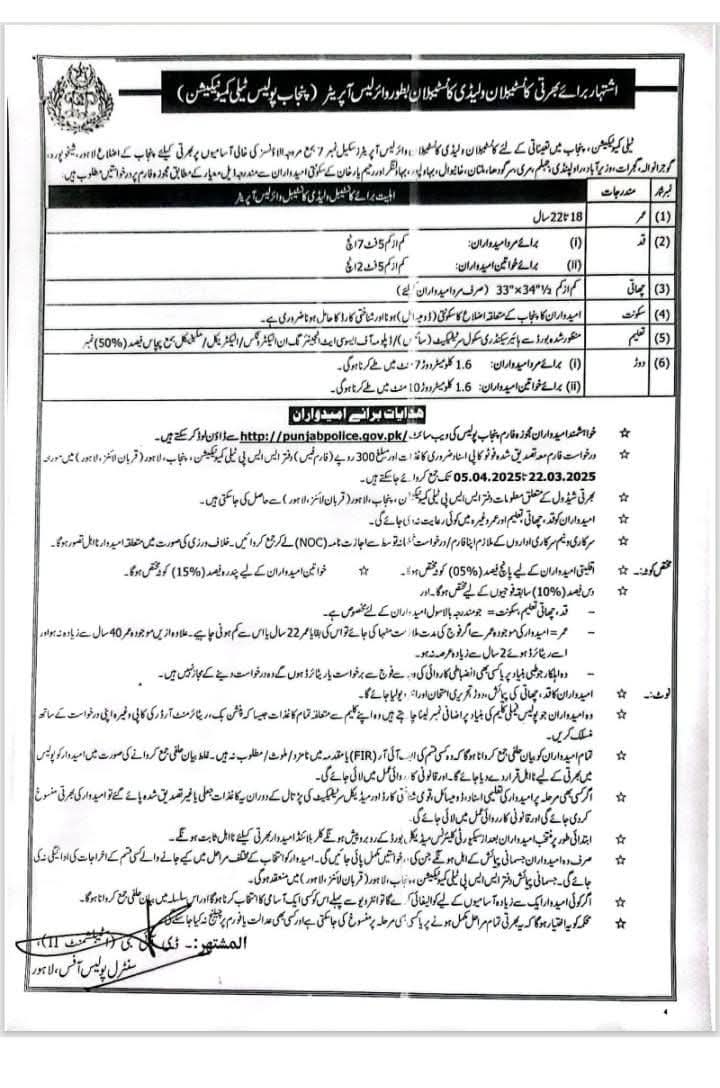 اشتہار برائے بھرتی کانسٹیبلان ولیڈی کانسٹیبلان بطور وائرلیس آپریٹر (پنجاب پولیس ٹیلی کمیونیکیشن)
ٹیلی کمیونیکیشن، پنجاب میں تعیناتی کے لئے کانسٹیبلان ولیڈی کانسٹیبلان وائرلیس آپریٹر (سکیل نمبر 7 بمع مروجہ الاؤنسز کی خالی آسامیوں پر بھرتی کیلئے پنجاب کے اضلاع لاہور، شیخوپورہ،
گوجرانوالہ، گجرات، وزیرآباد، راولپنڈی، جہلم، مری، سرگودھا، ملتان، خانیوال، بہاولپور، بہاولنگر اور رحیم یار خان کے سکونتی امیدواران سے مندرجہ ذیل معیار کے مطابق مجوزہ فارم پر درخواستیں مطلوب ہیں۔
نمبر شمار مندرجات اہلیت برائے کانسٹیبل ولیڈی کانسٹیبل وائرلیس آپریٹر
(1) عمر 18 تا 22 سال
(2) قد (i) برائے مرد امیدواران: کم از کم 5 فٹ 7 انچ
(ii) برائے خواتین امیدواران: کم از کم 5 فٹ 2 انچ
(3) چھاتی کم از کم 33"×34½" (صرف مرد امیدواران کے لئے)
(4) سکونت امیدواران کا پنجاب کے متعلقہ اضلاع کا سکونتی (ڈومیسائل) ہونا اور شناختی کارڈ کا حامل ہونا ضروری ہے۔
(5) تعلیم منظور شدہ بورڈ سے ہائیر سیکنڈری سکول سرٹیفکیٹ (سائنس)/ڈپلومہ آف ایسوسی ایٹ انجینئرنگ ان الیکٹرونکس/الیکٹریکل/مکینیکل بمع پچاس فیصد (50%) نمبر
(6) دوڑ (i) برائے مرد امیدواران: 1.6 کلومیٹر دوڑ 7 منٹ میں طے کرنا ہوگی۔
(ii) برائے خواتین امیدواران: 1.6 کلومیٹر دوڑ 10 منٹ میں طے کرنا ہوگی۔
ھدایات برائے امیدواران
☆ خواہشمند امیدواران مجوزہ فارم پنجاب پولیس کی ویب سائٹ http://punjabpolice.gov.pk/ سے ڈاؤن لوڈ کر سکتے ہیں۔
☆ درخواست فارم معہ تصدیق شدہ فوٹو کاپی اسناد ضروری کاغذات اور مبلغ 300 روپے (فارم فیس) دفتر ایس ایس پی ٹیلی کمیونیکیشن، پنجاب، لاہور (قربان لائنز، لاہور) میں مورخہ
22.03.2025 تا 05.04.2025 تک جمع کروائے جا سکتے ہیں۔
☆ بھرتی شیڈول کے متعلق معلومات دفتر ایس ایس پی ٹیلی کمیونیکیشن، پنجاب، لاہور (قربان لائنز، لاہور) سے حاصل کی جا سکتی ہیں۔
☆ امیدواران کو قد، چھاتی تعلیم اور عمر وغیرہ میں کوئی رعایت نہ دی جائے گی۔
☆ سرکاری و نیم سرکاری اداروں کے ملازم اپنا فارم/درخواست محکمانہ توسط سے اجازت نامہ (NOC) لے کر جمع کروائیں۔ خلاف ورزی کی صورت میں متعلقہ امیدوار نااہل تصور ہوگا۔
مختص کوٹہ:۔ ☆ اقلیتی امیدواران کے لیے پانچ فیصد (05%) کوٹہ مختص ہوگا۔ ☆ خواتین امیدواران کے لیے پندرہ فیصد (15%) کوٹہ مختص ہوگا۔
☆ دس فیصد (10%) سابقہ فوجیوں کے لیے مختص ہوگا۔ اور
– قد، چھاتی تعلیم، سکونت = جو مندرجہ بالا سول امیدواران کے لئے مخصوص ہے۔
– عمر = امیدوار کی موجودہ عمر سے اگر فوج کی مدت ملازمت منہا کی جائے تو اس کی بقایا عمر 22 سال یا اس سے کم ہونی چاہیے۔ علاوہ ازیں موجودہ عمر 40 سال سے زیادہ نہ ہو اور
اسے ریٹائرڈ ہوئے 2 سال سے زیادہ عرصہ نہ ہو۔
– وہ اہلکار جو طبی بنیاد پر یا کسی بھی انضباطی کاروائی کی وجہ سے فوج سے برخواست یا ریٹائرڈ ہوں گے وہ درخواست دینے کے مجاز نہیں ہیں۔
نوٹ:۔ ☆ امیدواران کا قد، چھاتی کی پیمائش، دوڑ، تحریری امتحان اور انٹرویو لیا جائے گا۔
☆ وہ امیدواران جو پولیس فیملی کلیم کی بنیاد پر اضافی نمبر لینا چاہتے ہیں وہ اپنے کلیم سے متعلقہ تمام کاغذات جیسا کہ پنشن بک، ریٹائرمنٹ آرڈر کی کاپی وغیرہ اپنی درخواست کے ساتھ
منسلک کریں۔
☆ تمام امیدواران کو بیان حلفی جمع کروانا ہوگا کہ وہ کسی قسم کی ایف آئی آر (FIR) یا مقدمہ میں نامزد/ملوث/مطلوب نہ ہیں۔ غلط بیان حلفی جمع کروانے کی صورت میں امیدوار کو پولیس
میں بھرتی کے لیے نااہل قرار دے دیا جائے گا۔ اور قانونی کاروائی عمل میں لائی جائے گی۔
☆ اگر کسی بھی مرحلہ پر امیدوار کی تعلیمی اسناد، ڈومیسائل، قومی شناختی کارڈ اور میڈیکل سرٹیفکیٹ کی پڑتال کے دوران یہ کاغذات جعلی یا غیر تصدیق شدہ پائے گئے تو امیدوار کی بھرتی منسوخ
کردی جائے گی اور قانونی کارروائی عمل میں لائی جائے گی۔
☆ ابتدائی طور پر منتخب امیدواران بعد از سیکورٹی کلیئرنس میڈیکل بورڈ کے روبرو پیش ہونگے کلر بلائنڈ امیدوار بھرتی کیلئے نااہل ثابت ہونگے۔
☆ صرف وہ امیدواران جسمانی پیمائش کے اہل ہونگے جن کی درخواستیں مکمل پائی جائیں گی۔ امیدوار کو انتخاب کے مختلف مراحل میں کیے جانے والے کسی قسم کے اخراجات کی ادائیگی نہ کی
جائے گی۔ جسمانی پیمائش دفتر ایس ایس پی ٹیلی کمیونیکیشن، پنجاب، لاہور (قربان لائنز، لاہور) میں منعقد ہوگی۔
☆ اگر کوئی امیدوار ایک سے زیادہ آسامیوں کے لیے کوالیفائی کرے گا تو انٹرویو سے پہلے اس کو کسی ایک آسامی کا انتخاب کرنا ہوگا اور اس سلسلہ میں بیان حلفی جمع کروانا ہوگا۔
☆ محکمہ کو یہ اختیار ہوگا کہ یہ بھرتی تمام مراحل مکمل ہونے پر یا کسی بھی مرحلہ پر منسوخ کی جا سکتی ہے اور کسی بھی عدالت یا فورم پر چیلنج نہ کیا جا سکے گا۔
المشتھر:۔ ڈی آئی جی (اسٹیبلشمنٹ II)،
سنٹرل پولیس آفس، لاہور
4